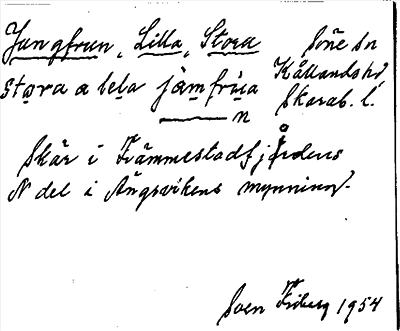 Jungfrun, Lilla, Stora Söne sn
stora a lela jåmfrua Kållands hd
n Skarab. l.
Skär i Främmestadfjärdens
N del i Ängsvikens mynning.
Sven Friberg 1954